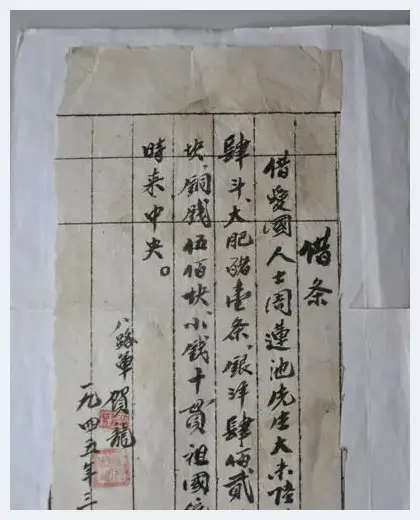 借条
借愛國人士周蓮池先生大米陸
肆斗、大肥豬壹条、銀洋肆佰貳
块、銅錢伍佰块、小錢十貫祖國
時来中央。
八路軍賀龍
一九四五年三